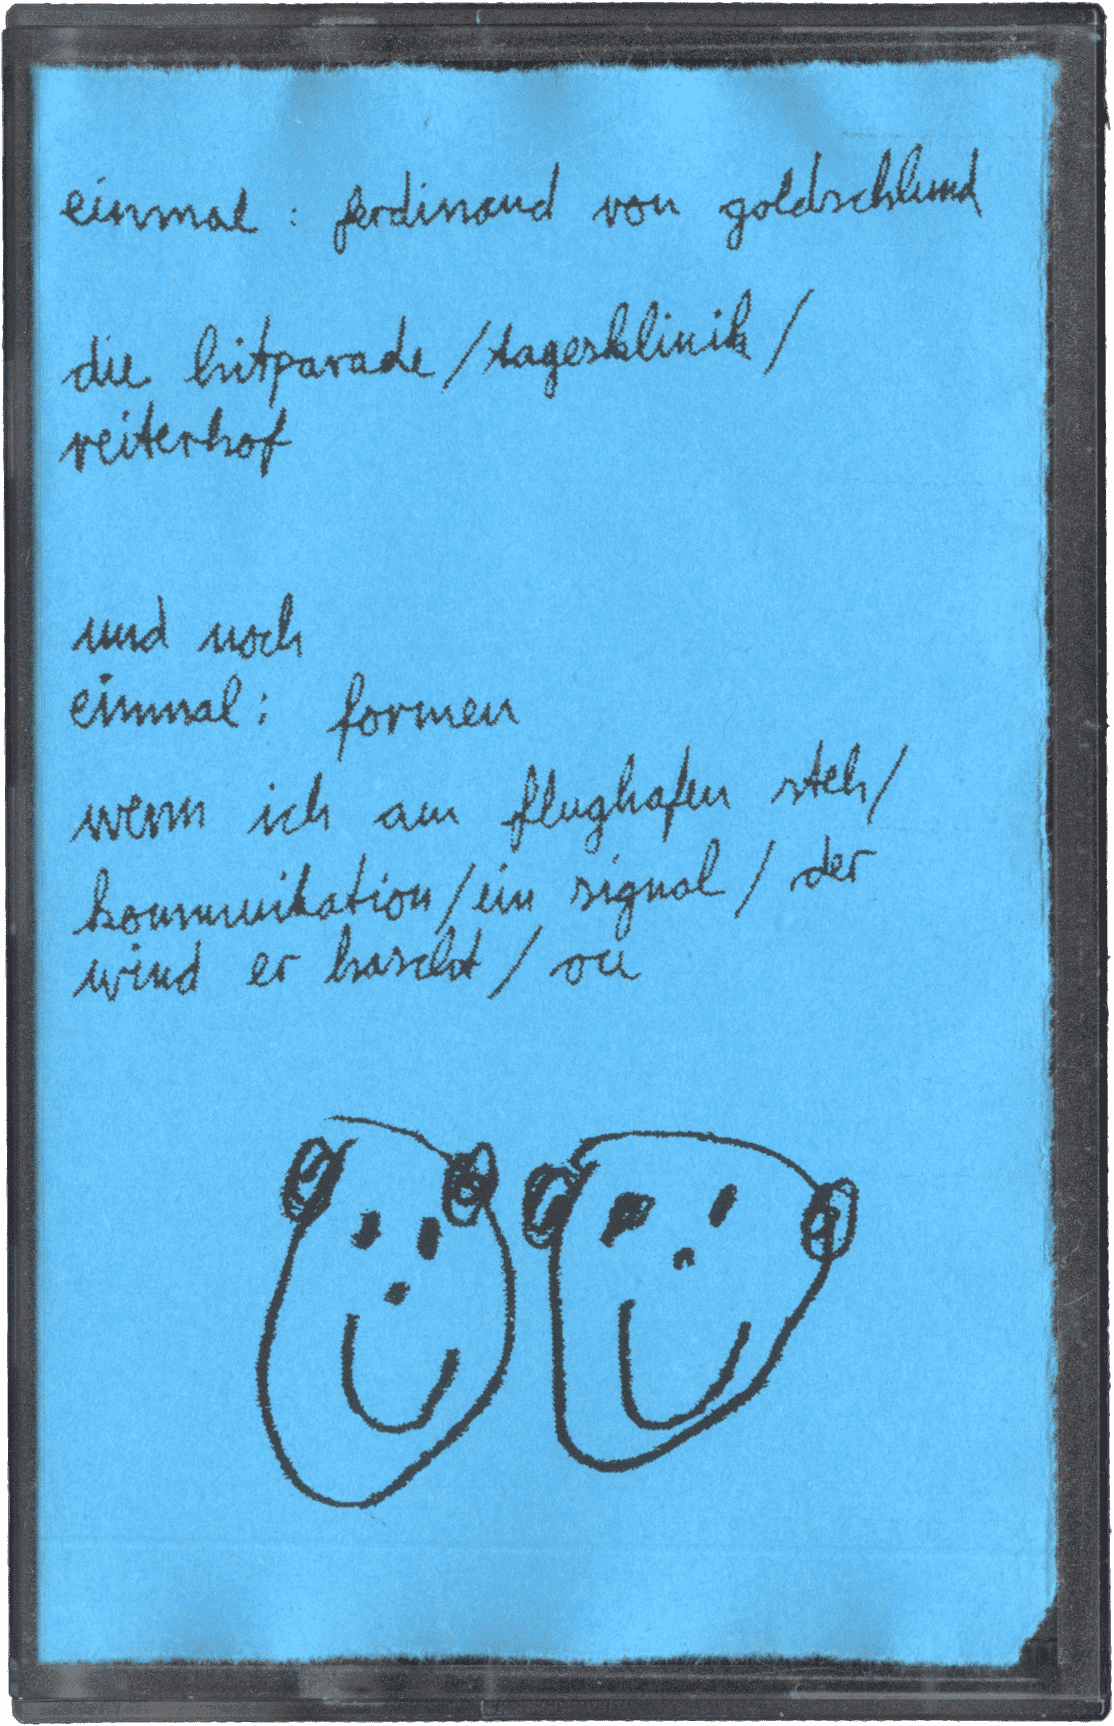 einmal : ferdinand von goldschlund
die hitparade / tagesklinik /
reiterhof
und noch
einmal : formen
wenn ich am flughafen steh /
kommunikation / ein signal / der
wind er hascht / ou